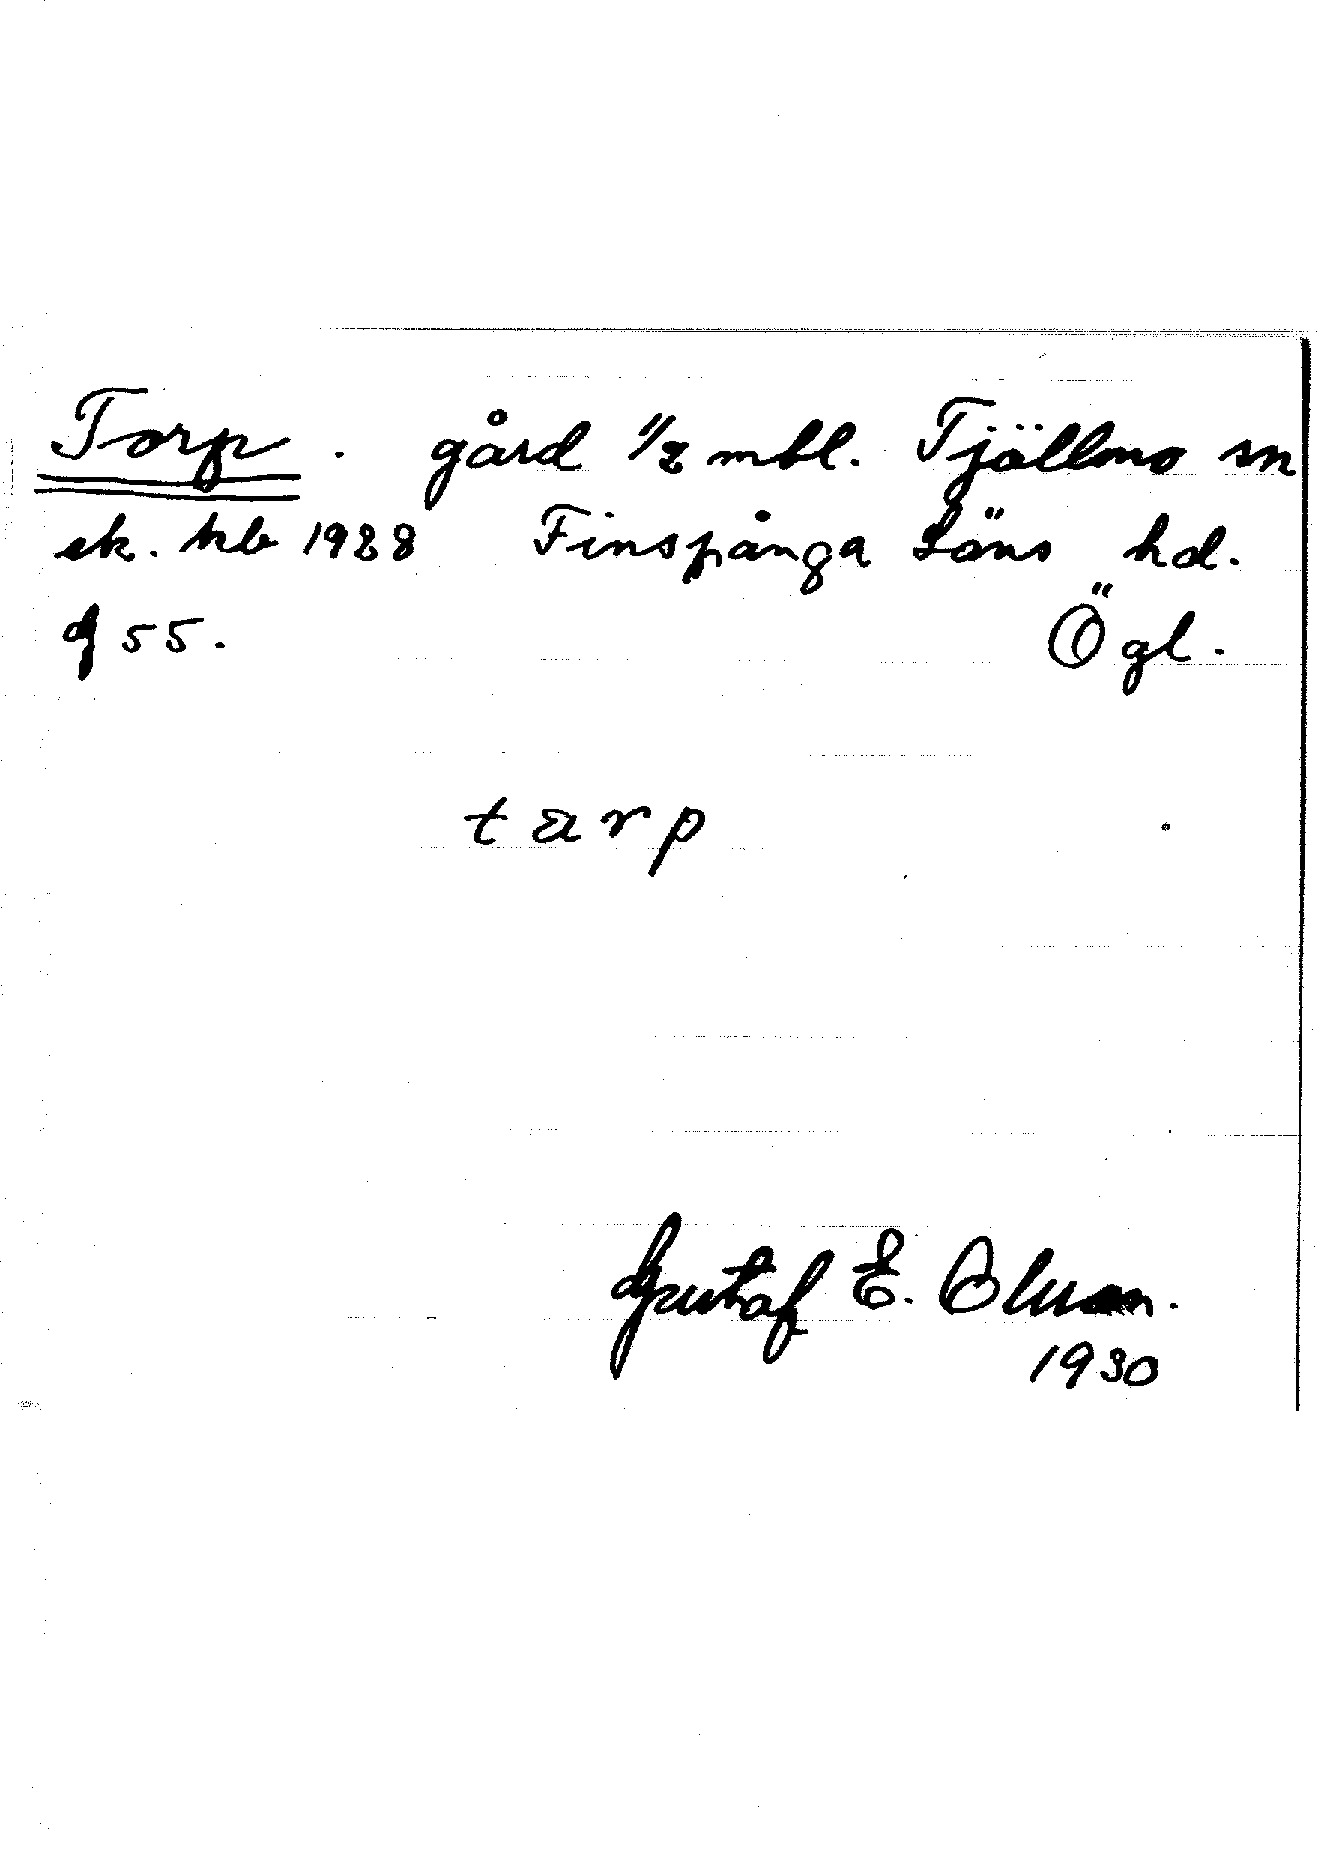 Torp. gård 1/2 mtl. Tjällmo sn
ek. kb 1928 Finspånga Läns hd.
55. Ögl.
tarp
Gustaf E. Olsson.
1930